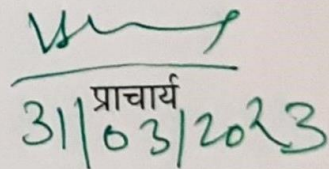 प्राचार्य
31/03/2023